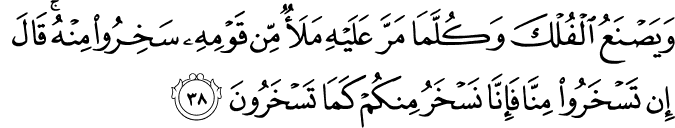 وَيَصْنَعُ ٱلْفُلْكَ وَكُلَّمَا مَرَّ عَلَيْهِ مَلَأٌ مِّن قَوْمِهِۦ سَخِرُوا۟ مِنْهُ ۚ قَالَ
إِن تَسْخَرُوا۟ مِنَّا فَإِنَّا نَسْخَرُ مِنكُمْ كَمَا تَسْخَرُونَ ٣٨